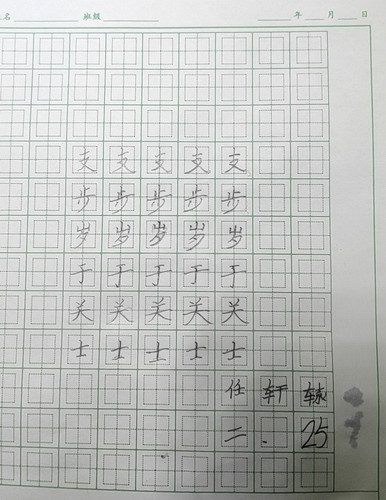 名 班级 年 月 日
支 支 支 支 支
步 步 步 步 步
岁 岁 岁 岁 岁
于 于 于 于 于
关 关 关 关 关
士 士 士 士 士
任 轩 辕
二 . 25